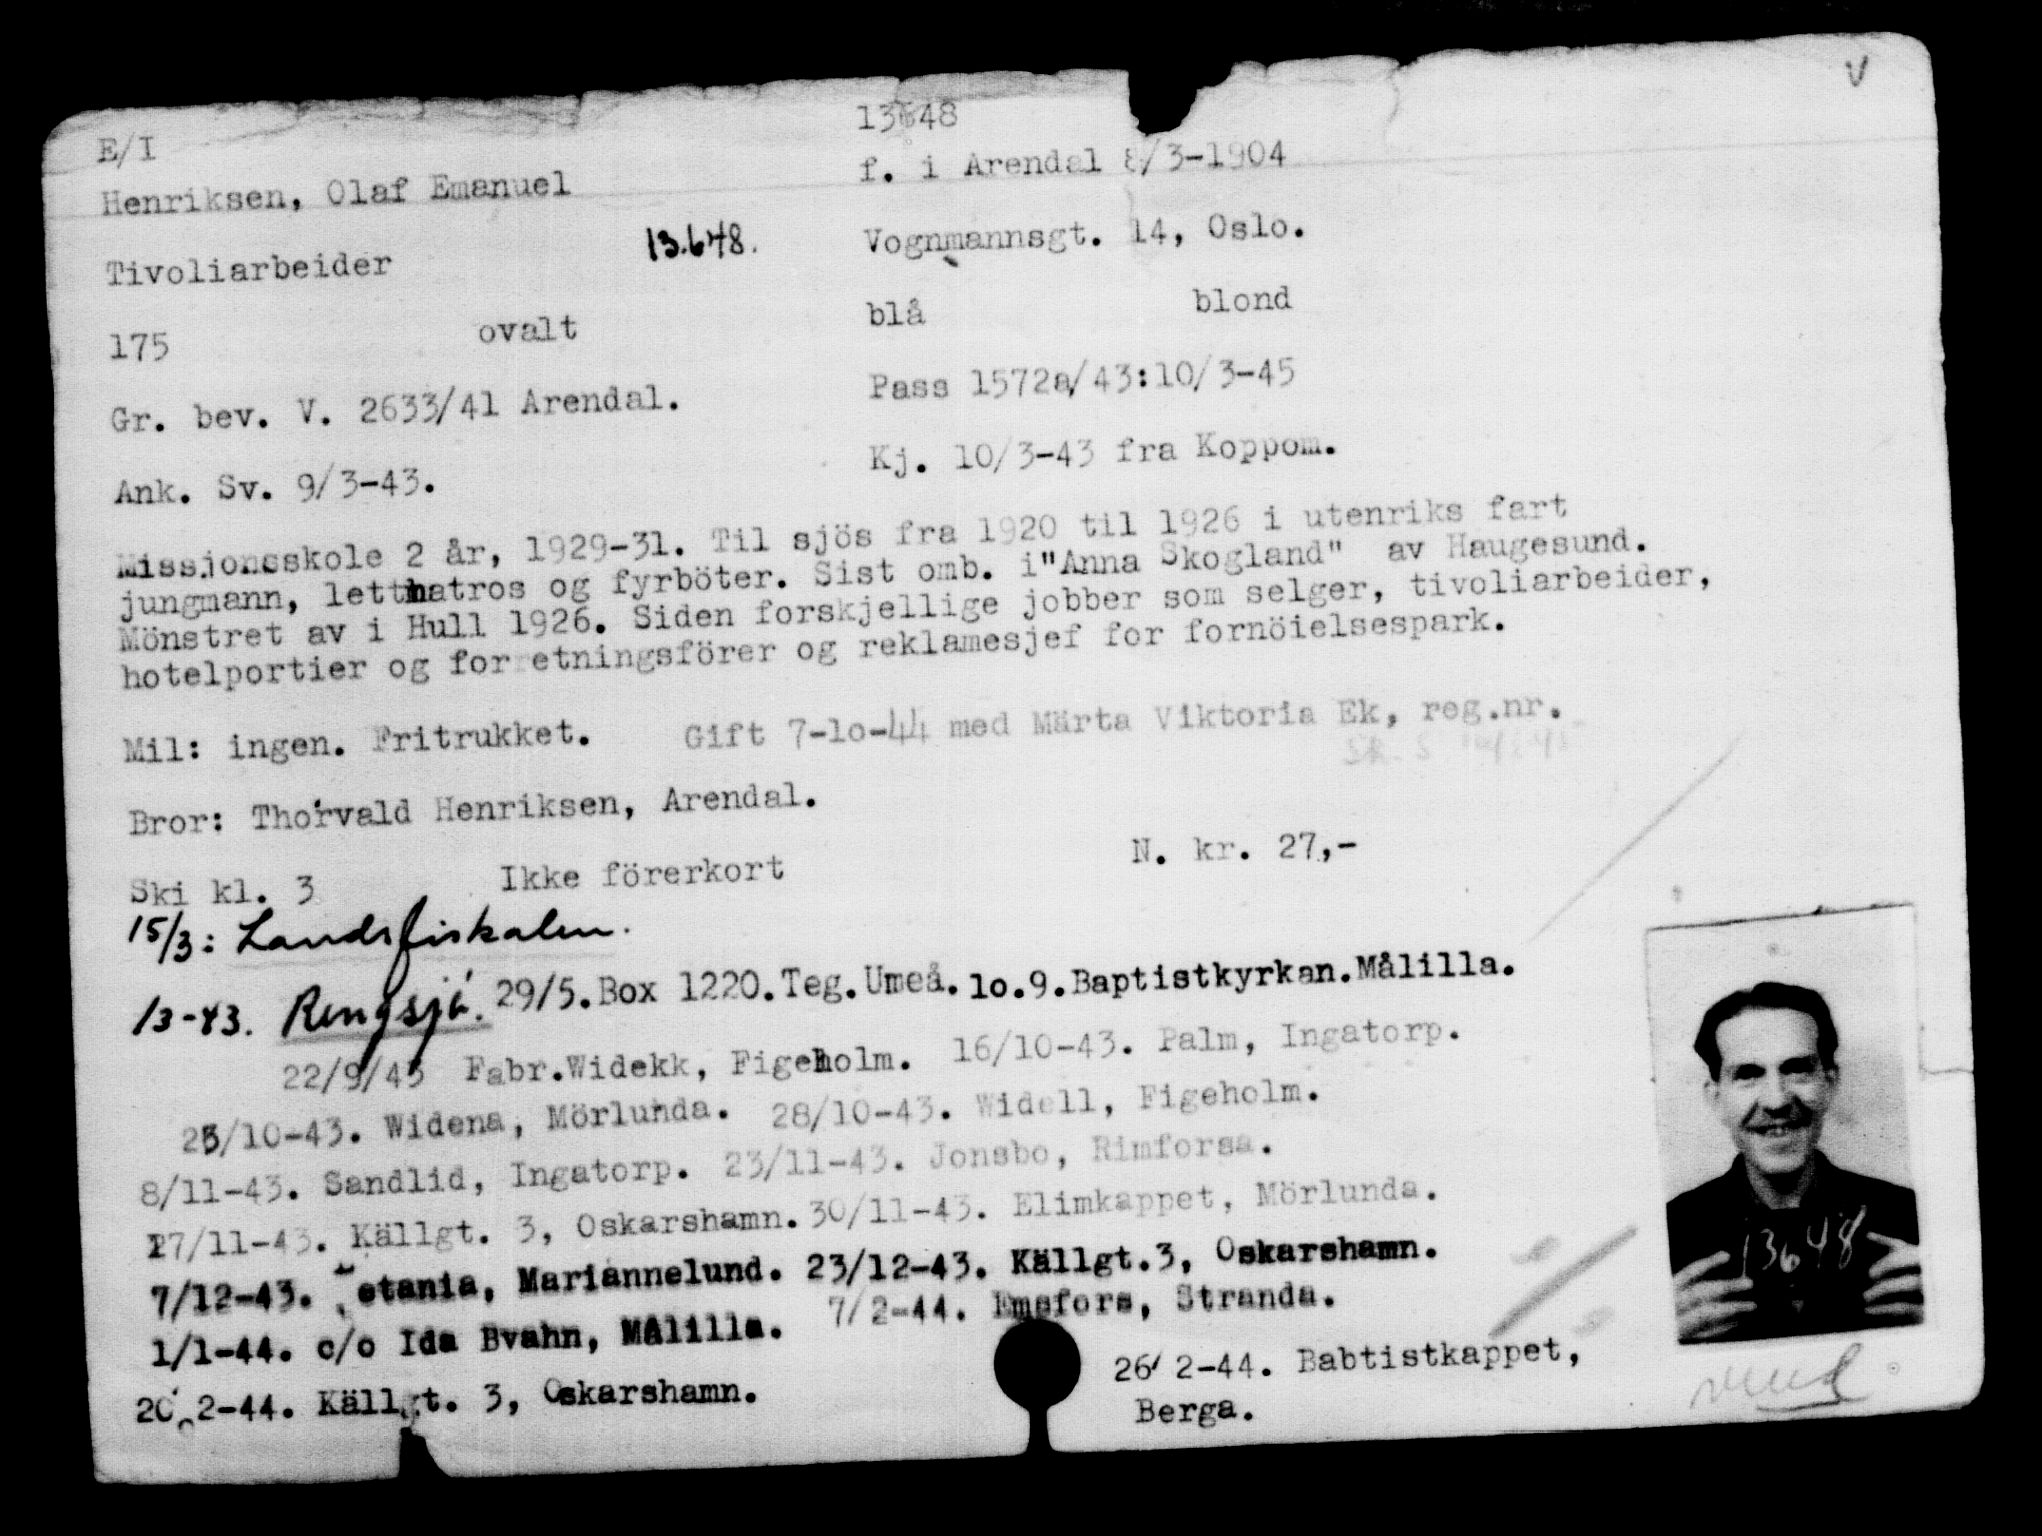 V
E/I 13648
Henriksen, Olaf Emanuel f. i Arendal 8/3-1904
Tivoliarbeider 13.648. Vognmannsgt. 14, Oslo.
175 ovalt blå blond
Gr. bev. V. 2633/41 Arendal. Pass 1572a/43:10/3-45
Ank. Sv. 9/3-43. Kj. 10/3-43 fra Koppom.
Missjonsskole 2 år, 1929-31. Til sjös fra 1920 til 1926 i utenriks fart
jungmann, lettmatros og fyrböter. Sist omb. i"Anna Skogland" av Haugesund.
Mönstret av i Hull 1926. Siden forskjellige jobber som selger, tivoliarbeider,
hotelportier og forretningsförer og reklamesjef for fornöielsespark.
Mil: ingen. Fritrukket. Gift 7-10-44 med Märta Viktoria Ek, reg.nr.
Bror: Thorvald Henriksen, Arendal.
Ski kl. 3 Ikke förerkort N. kr. 27,-
15/3: Landsfiskalen.
/3-43. Rengsjö. 29/5.Box 1220.Teg.Umeå. 10.9.Baptistkyrkan.Målilla.
22/9/43 Fabr.Widekk, Figeholm. 16/10-43. Palm, Ingatorp.
25/10-43. Widena, Mörlunda. 28/10-43. Widell, Figeholm.
8/11-43. Sandlid, Ingatorp. 23/11-43. Jonsbo, Rimforsa.
27/11-43. Källgt. 3, Oskarshamn. 30/11-43. Elimkappet, Mörlunda.
7/12-43. etania, Mariannelund. 23/12-43. Källgt.3, Oskarshamn.
1/1-44. c/o Ida Bvahn, Målilla. 7/2-44. Emsfors, Stranda.
20/2-44. Källgt. 3, Oskarshamn. 26/2-44. Babtistkappet,
Berga.
13648